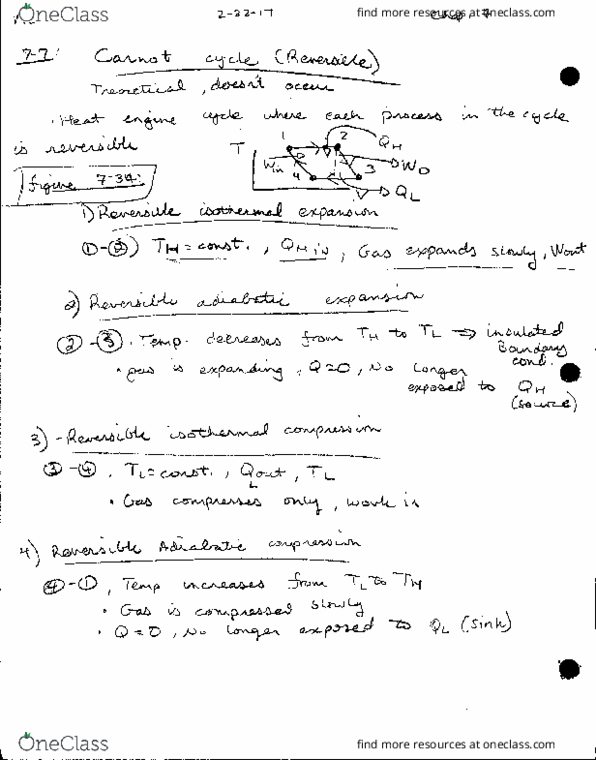 OneClass
find more resources at oneclass.com
2-22-17
7-7: Carnot cycle (Reversible)
Theoretical, doesn't occur
· Heat engine cycle where each process in the cycle
is reversible
Figure 7-34:
T 1 2 QH
Win WO
4 3
QL
V
1) Reversible isothermal expansion
①-②) TH = const. , QH in , Gas expands slowly, Wout
2) Reversible adiabatic expansion
②-③ · Temp. decreases from TH to TL ⇒ insulated
Boundary
cond.
· gas is expanding, Q=0, No longer
exposed to QH
(source)
3) - Reversible isothermal compression
③-④ . TL = const. , QLout , TL
· Gas compresses only, work in
4) Reversible Adiabatic compression
④-①, Temp increases from TL to TH
· Gas is compressed slowly
· Q=0, No longer exposed to QL (sink)
OneClass
find more resources at oneclass.com